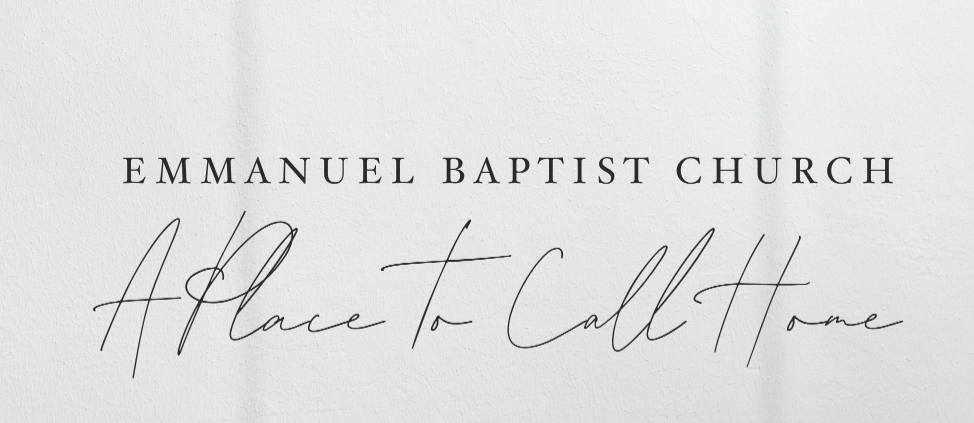 EMMANUEL BAPTIST CHURCH
A Place To Call Home